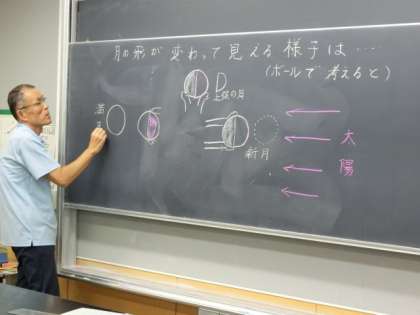 月の形が変わって見える様子は…
(ボールで考えると)
上弦の月
満月
新月
太陽